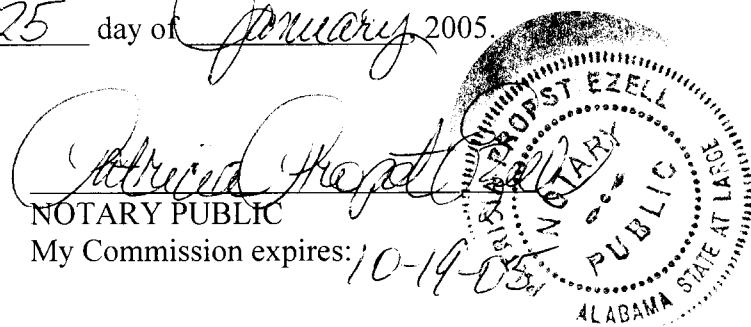 25 day of January, 2005.
Patricia Propst Ezell
NOTARY PUBLIC
My Commission expires: 10-19-05
PATRICIA PROPST EZELL
NOTARY
PUBLIC
ALABAMA STATE AT LARGE